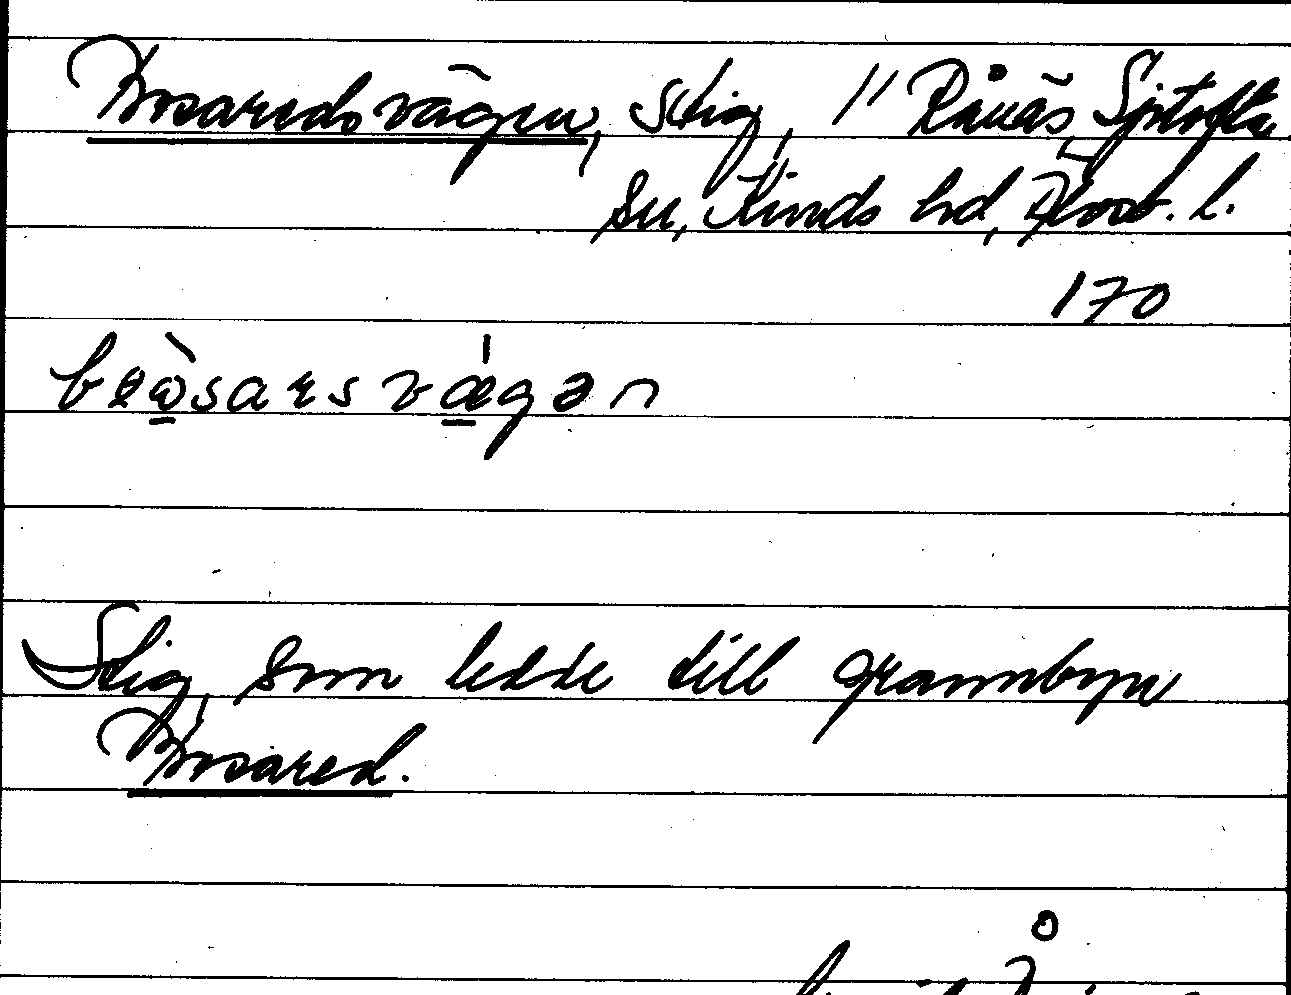 Brosaredsvägen, stig, 1/1 Rånäs, Sjötofta
sn, Kinds hd, Älvsb. l.
170
brὼsarsvǽgən
Stig, som ledde till grannbyn
Brosared.